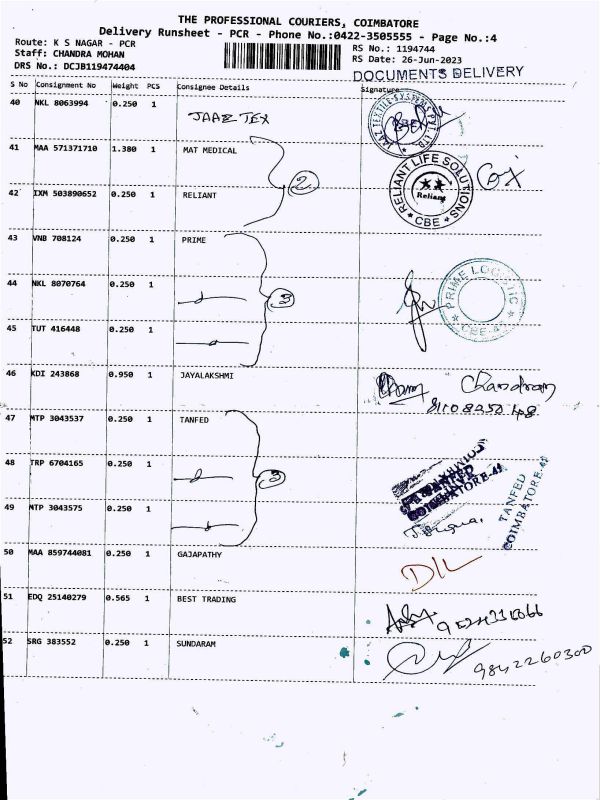 THE PROFESSIONAL COURIERS, COIMBATORE
Delivery Runsheet - PCR - Phone No.:0422-3505555 - Page No.:4
Route: K S NAGAR - PCR
Staff: CHANDRA MOHAN
DRS No.: DCJB119474404
RS No.: 1194744
RS Date: 26-Jun-2023
DOCUMENTS DELIVERY
S No Consignment No Weight PCS Consignee Details Signature
40 NKL 8063994 0.250 1 JAAZ TEX
41 MAA 571371710 1.380 1 MAT MEDICAL
2
RELIANT LIFE SOLUTIONS
Reliant
CBE
42 IXM 503890652 0.250 1 RELIANT
43 VNB 708124 0.250 1 PRIME
44 NKL 8070764 0.250 1
3
PRIME LOGISTIC
45 TUT 416448 0.250 1
46 KDI 243868 0.950 1 JAYALAKSHMI
Chandram
47 MTP 3043537 0.250 1 TANFED
48 TRP 6704165 0.250 1
3
TANFED
COIMBATORE-41
49 MTP 3043575 0.250 1
50 MAA 859744081 0.250 1 GAJAPATHY
D/L
51 EDQ 25140279 0.565 1 BEST TRADING
52 SRG 383552 0.250 1 SUNDARAM
9842260300